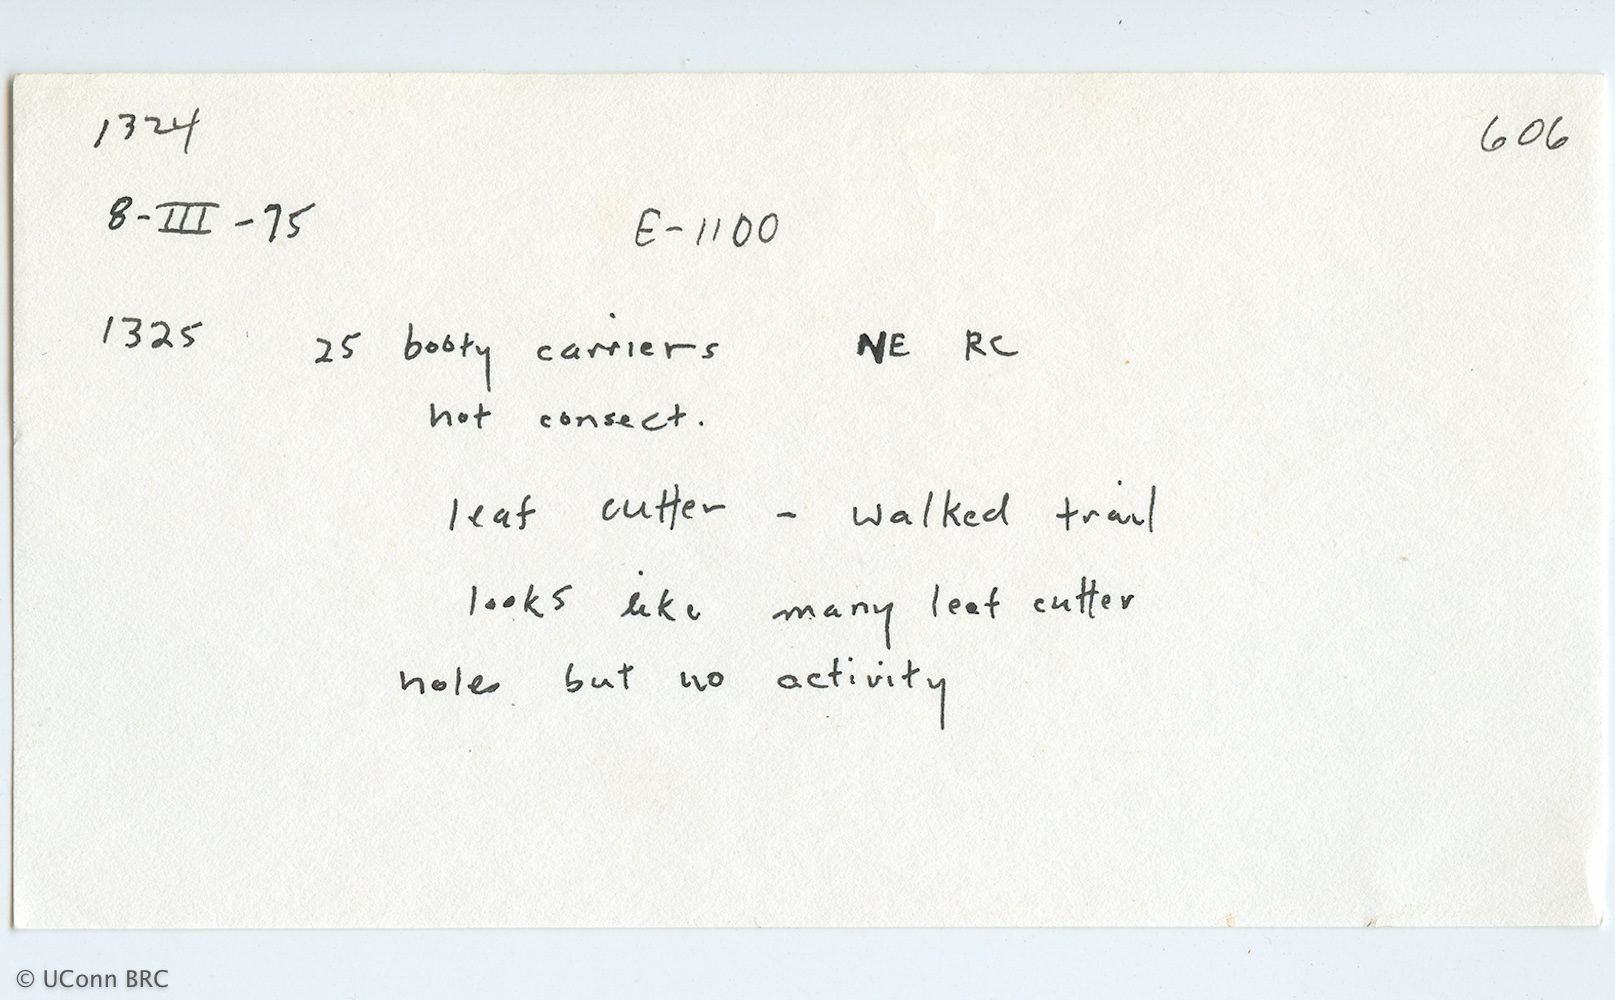 1324 606
8-III-75 E-1100
1325 25 booty carriers NE RC
not consect.
leaf cutter - walked trail
looks like many leaf cutter
holes but no activity
© UConn BRC